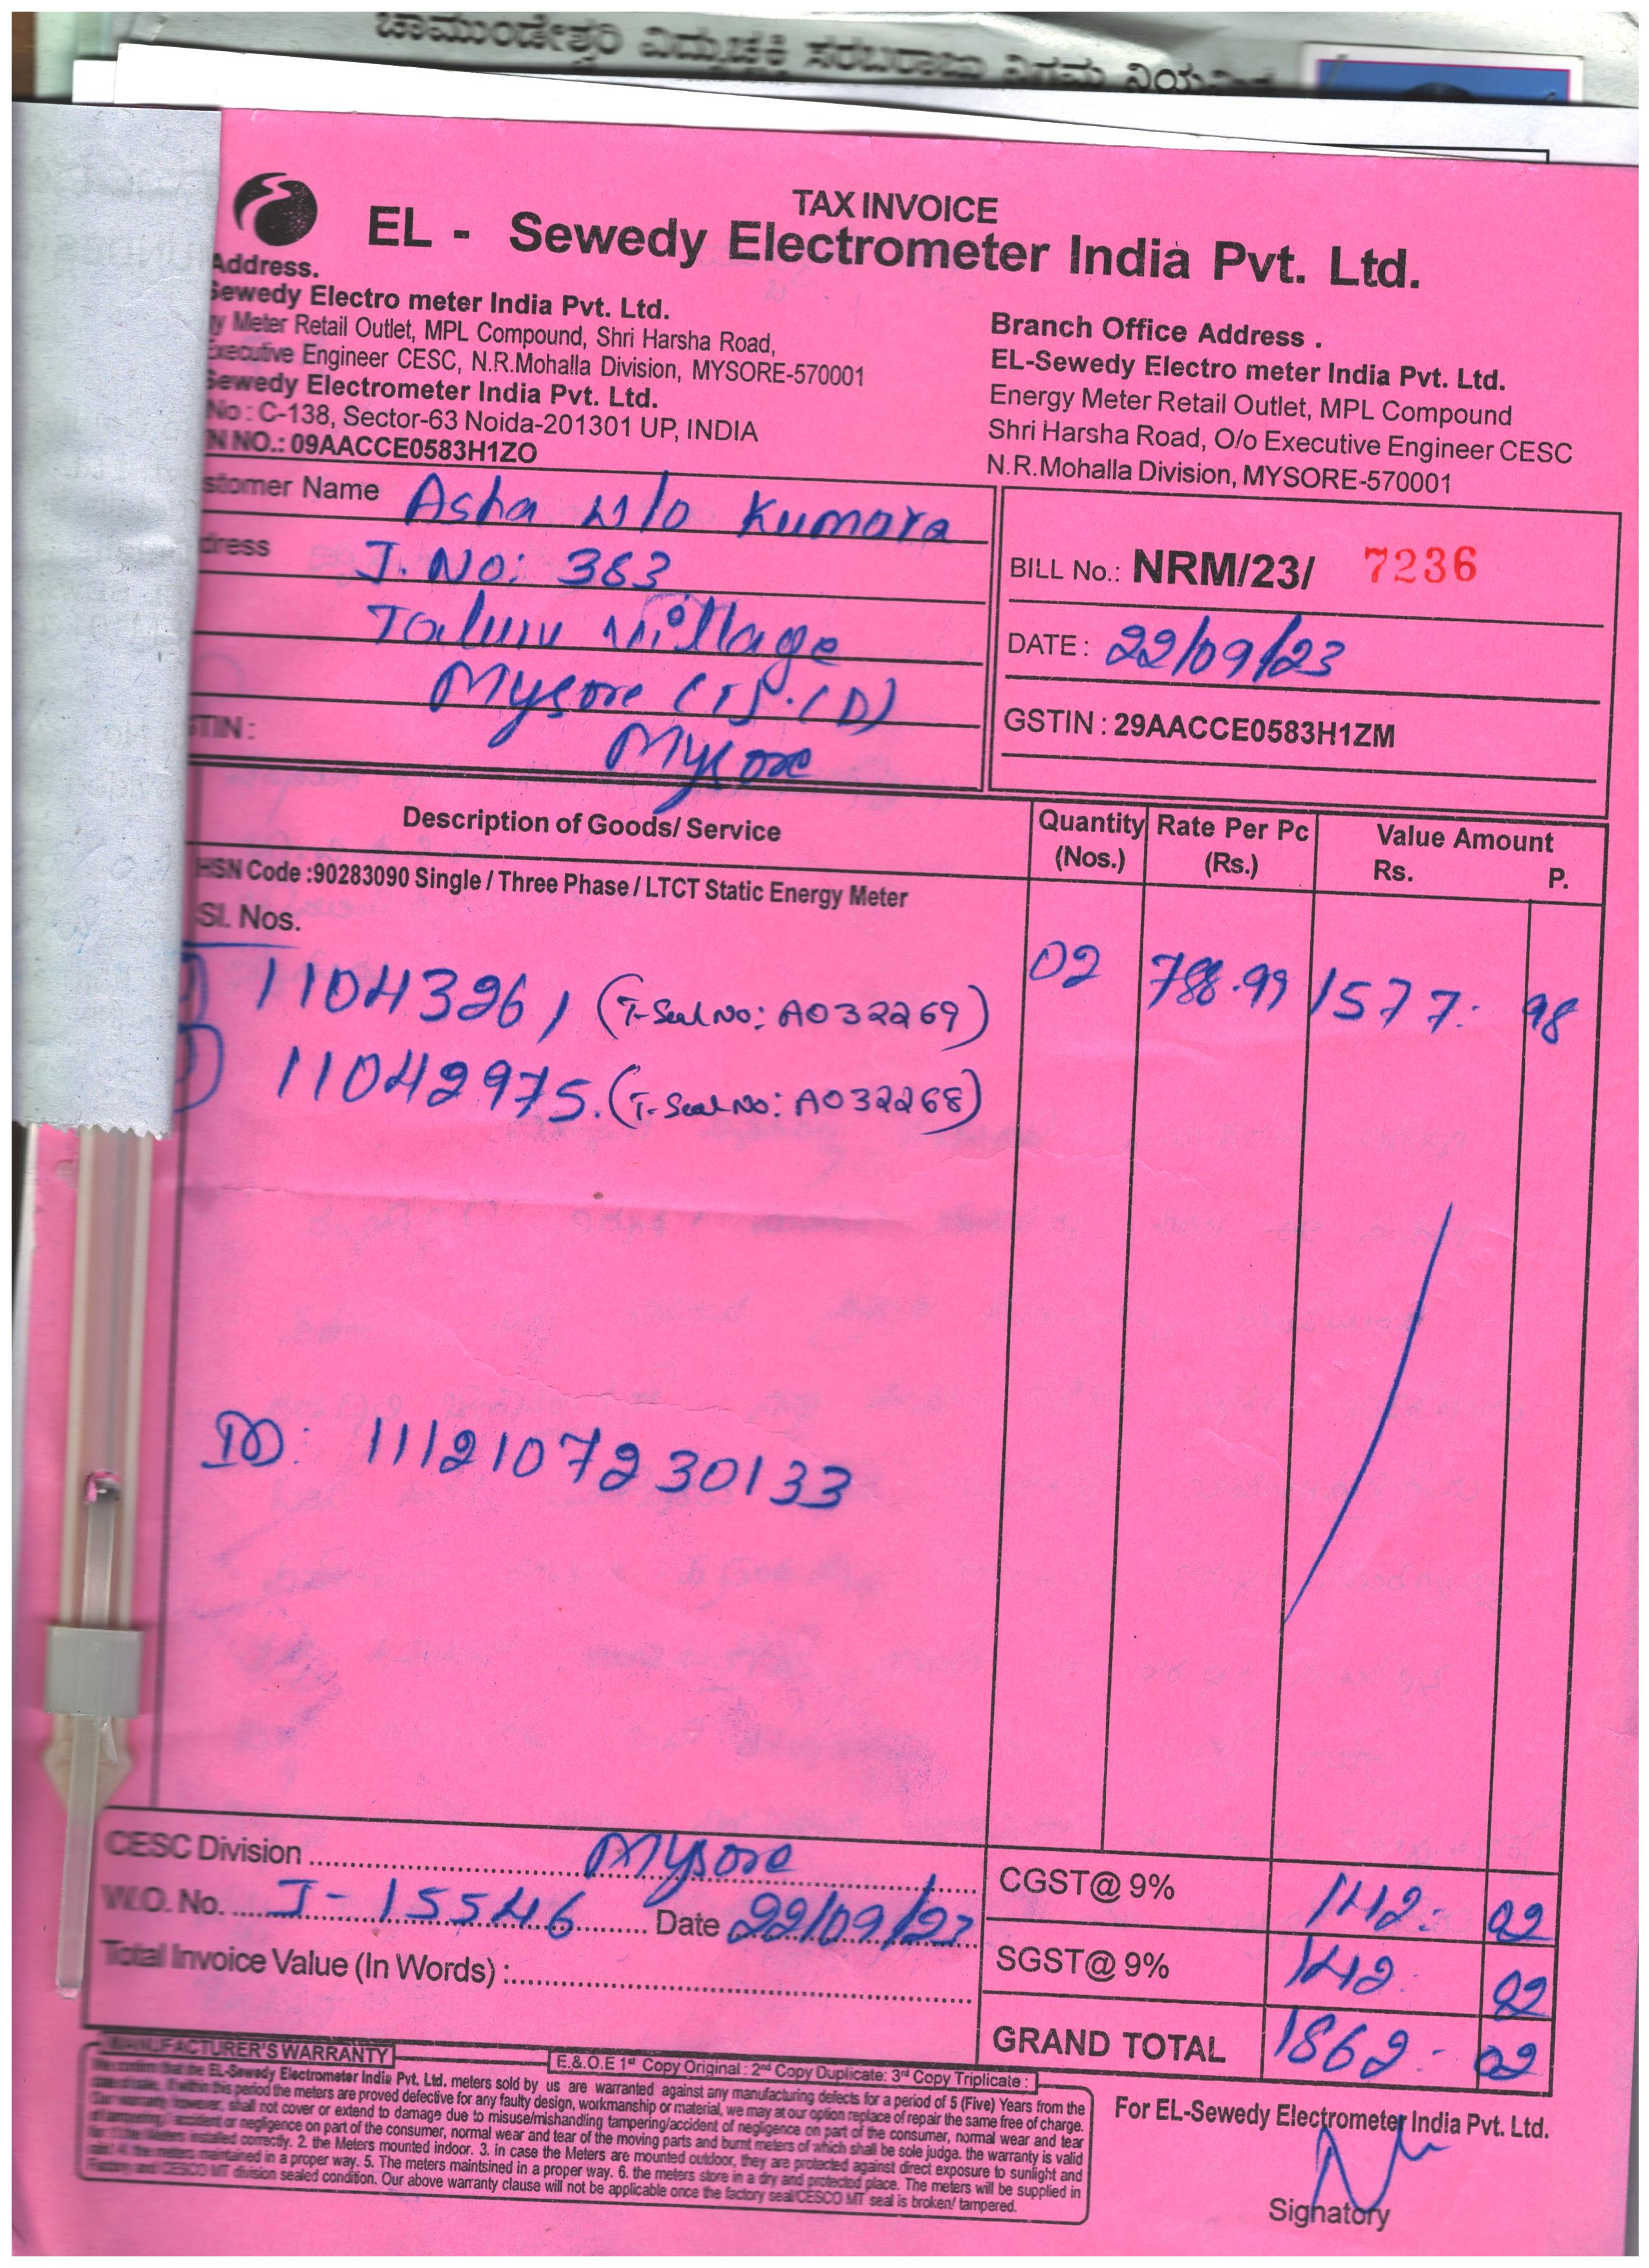 ಚಾಮುಂಡೇಶ್ವರಿ ವಿದ್ಯುಚ್ಛಕ್ತಿ ಸರಬರಾಜು ನಿಗಮ
TAX INVOICE
EL - Sewedy Electrometer India Pvt. Ltd.
Address.
Sewedy Electro meter India Pvt. Ltd.
y Meter Retail Outlet, MPL Compound, Shri Harsha Road,
Executive Engineer CESC, N.R.Mohalla Division, MYSORE-570001
Sewedy Electrometer India Pvt. Ltd.
No : C-138, Sector-63 Noida-201301 UP, INDIA
N NO.: 09AACCE0583H1ZO
Branch Office Address .
EL-Sewedy Electro meter India Pvt. Ltd.
Energy Meter Retail Outlet, MPL Compound
Shri Harsha Road, O/o Executive Engineer CESC
N.R.Mohalla Division, MYSORE-570001
stomer Name Asha W/o Kumara
dress J. No: 363
Village
Mysore
STIN : Mysore
BILL No.: NRM/23/ 7236
DATE : 22/09/23
GSTIN : 29AACCE0583H1ZM
Description of Goods/ Service Quantity (Nos.) Rate Per Pc (Rs.) Value Amount Rs. P.
HSN Code :90283090 Single / Three Phase / LTCT Static Energy Meter
Sl. Nos.
11043261 (T-Seal No: A032269) 02 788.99 1577: 98
11042975. (T-Seal No: A032268)
ID: 1112107230133
CESC Division Mysore
W.O. No. J-15546 Date 22/09/23
Total Invoice Value (In Words) :
CGST@ 9% 142: 02
SGST@ 9% 142: 02
GRAND TOTAL 1862: 02
MANUFACTURER'S WARRANTY
E.&.O.E 1st Copy Original : 2nd Copy Duplicate: 3rd Copy Triplicate :
We confirm that the EL-Sewedy Electrometer India Pvt. Ltd. meters sold by us are warranted against any manufacturing defects for a period of 5 (Five) Years from the
date of sale. If within this period the meters are proved defective for any faulty design, workmanship or material, we may at our option replace of repair the same free of charge.
Our warranty however, shall not cover or extend to damage due to misuse/mishandling tampering/accident of negligence on part of the consumer, normal wear and tear
of tampering / accident or negligence on part of the consumer, normal wear and tear of the moving parts and burnt meters of which shall be sole judga. the warranty is valid
the Meters installed correctly. 2. the Meters mounted indoor. 3. in case the Meters are mounted outdoor, they are protected against direct exposure to sunlight and
4. the meters maintained in a proper way. 5. The meters maintsined in a proper way. 6. the meters store in a dry and protected place. The meters will be supplied in
Factory and CESCO MT division sealed condition. Our above warranty clause will not be applicable once the factory seal/CESCO MT seal is broken/ tampered.
For EL-Sewedy Electrometer India Pvt. Ltd.
Signatory